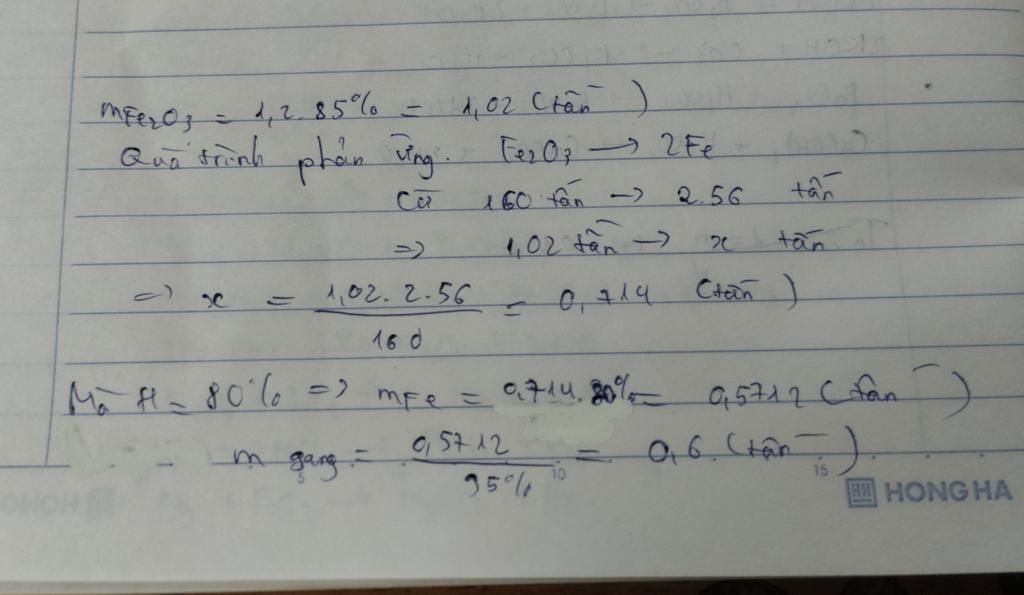 mFe2O3 = 1,2.85% = 1,02 (tấn)
Quá trình phản ứng. Fe2O3 → 2Fe
Cứ 160 tấn → 2.56 tấn
⇒ 1,02 tấn → x tấn
⇒ x = 1,02.2.56 / 160 = 0,714 (tấn)
Mà H = 80% ⇒ mFe = 0,714.80% = 0,5712 (tấn)
m gang = 0,5712 / 95% = 0,6 (tấn)
5 10 15
HONG HA